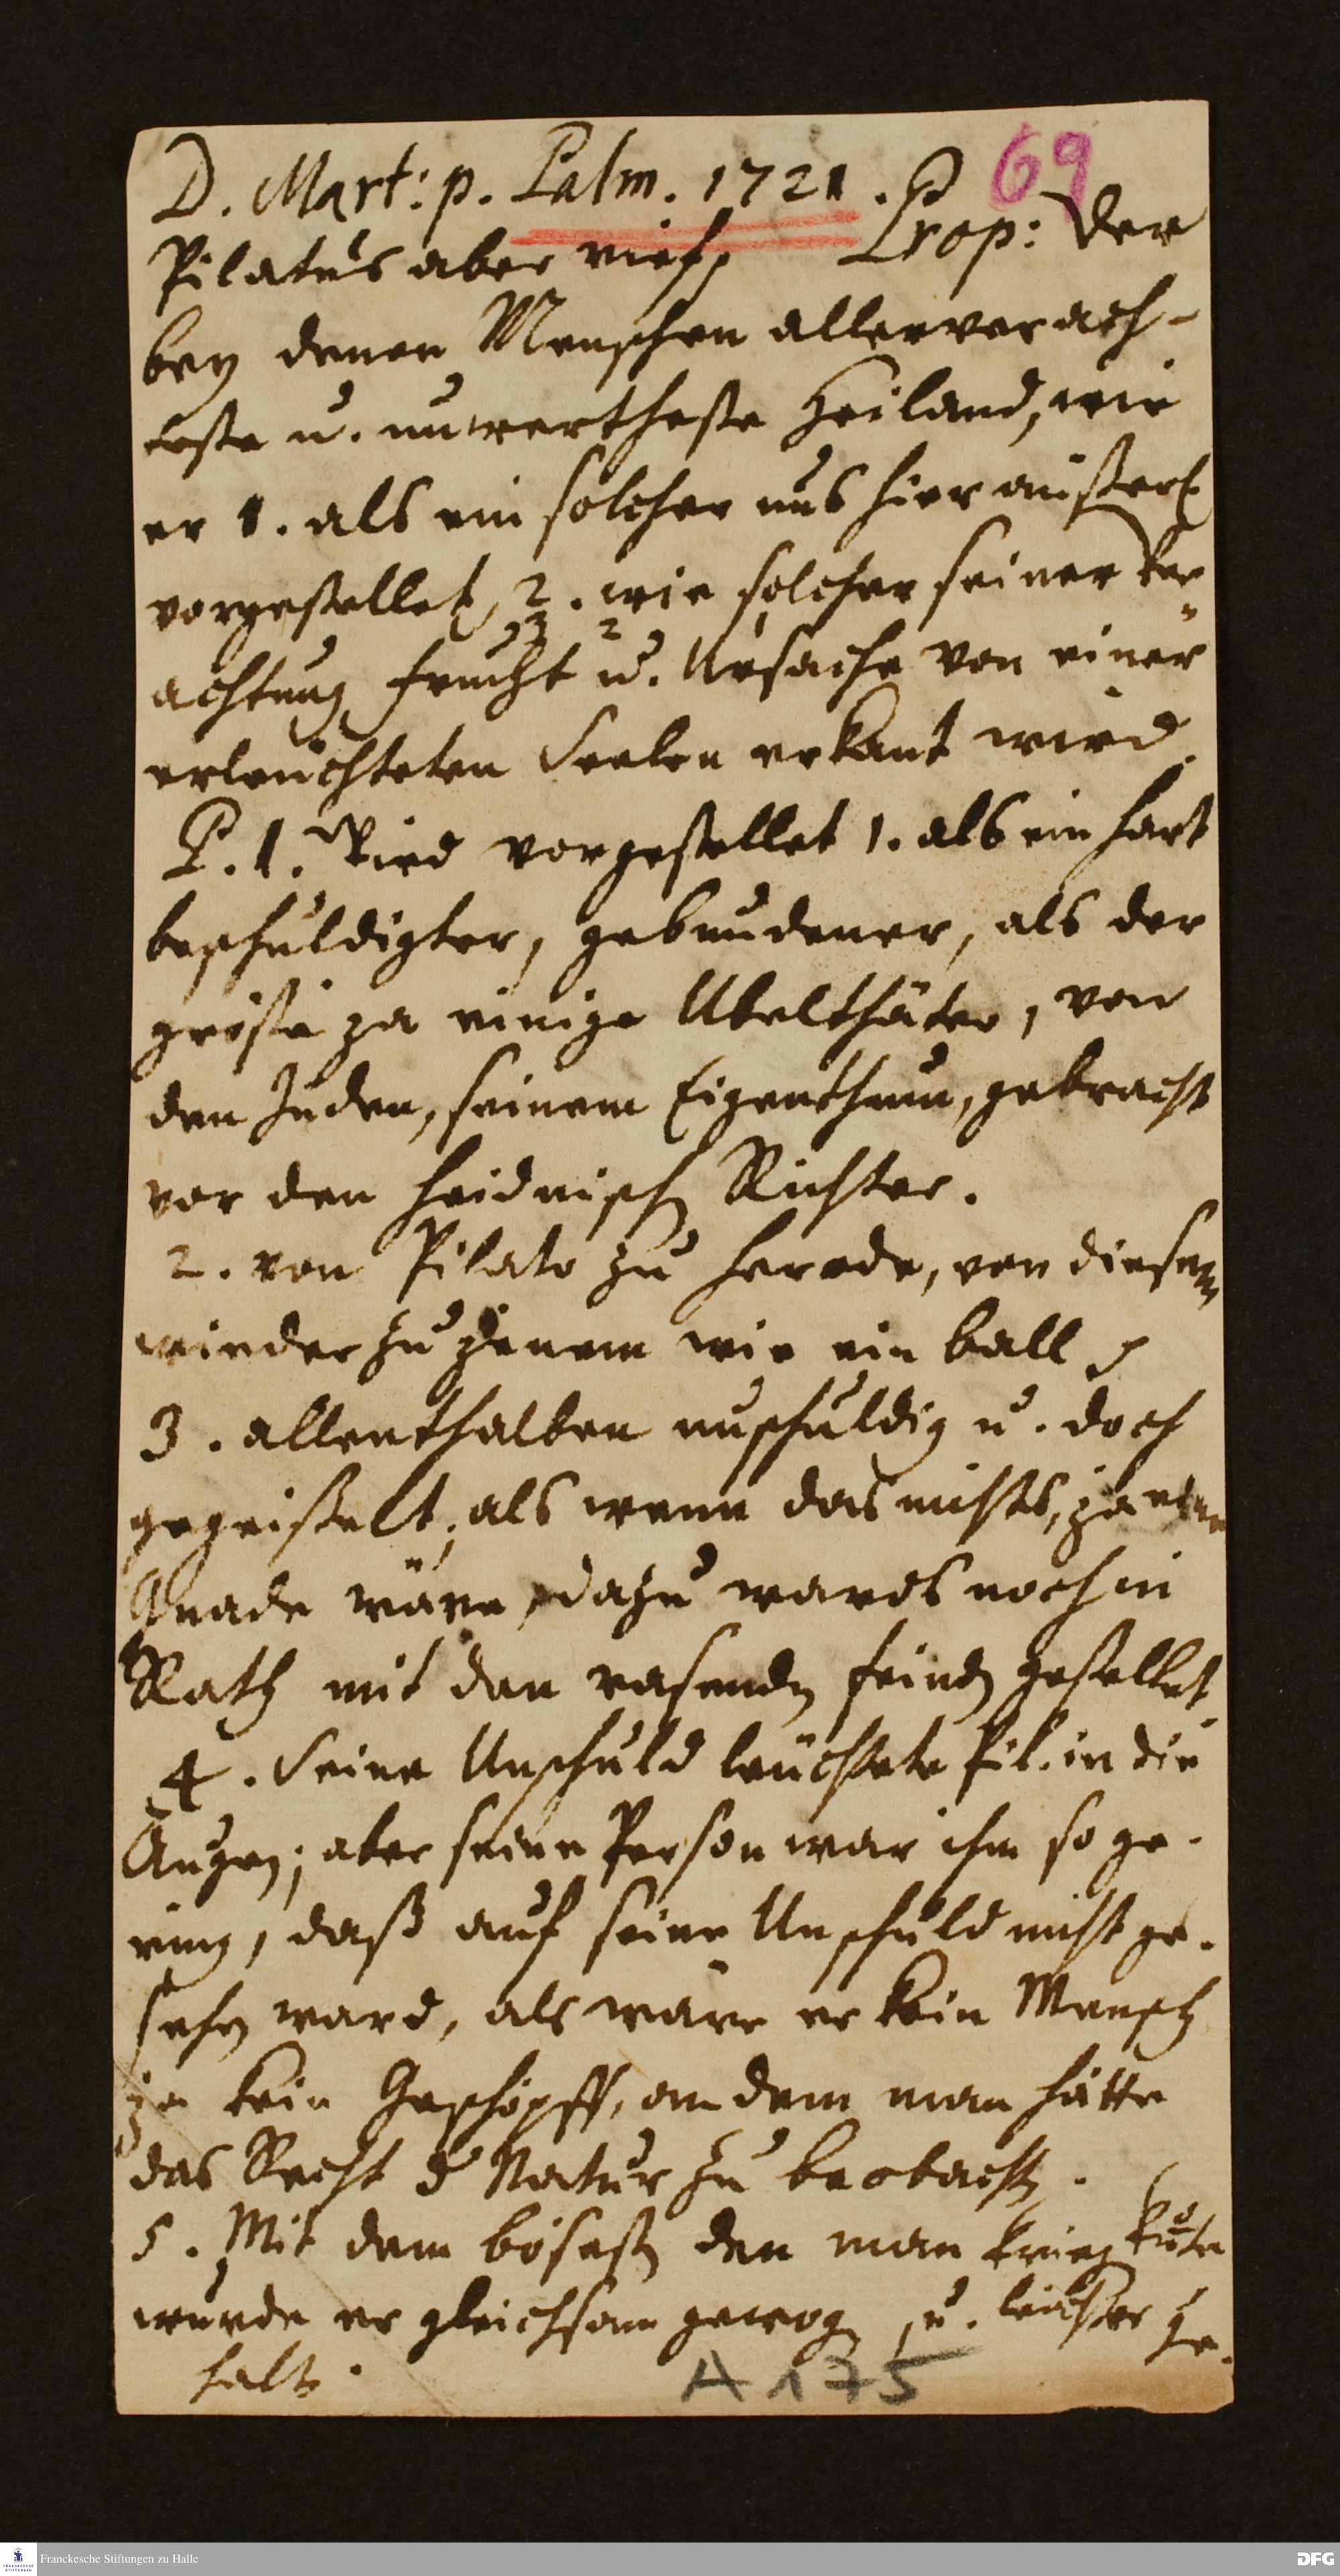 69
D. Mart: p. Palm. 1721.
Pilatus aber rief Prop: Der
bey denen Menschen allerverach-
teste u. unwertheste Heiland, wie
er 1. als ein solcher uns hier äußerl
vorgestellet, 2. wie solcher seiner Ver
achtung Frucht u. Ursache von einer
erleuchteten Seelen erkant wird.
P. 1. Wird vorgestellet 1. als ein hart
beschuldigter, gebundener, als der
größte ja einige Ubelthäter, von
den Juden, seinem Eigenthum, gebracht
vor den heidnisch Richter.
2. von Pilato zu Herode, von diesem
wieder zu jenem wie ein ball
3. allenthalben unschuldig u. doch
gegeißelt, als wenn das nichts, ja eine
Gnade wäre, dazu wards noch in
Rath mit den rasenden Feinden gestellet.
4. Seine Unschuld leuchtete Pil. in die
Augen; aber seine Person war ihm so ge-
ring, daß auf seine Unschuld nicht ge-
sehen ward, als wäre er kein Mensch
ja kein Geschöpff, an dem man hätte
das Recht d Natur zu beobachten.
5. Mit dem bösesten den man krieg kunte
wurde er gleichsam gewogen, u. leichter ge-
halten.
A 175
Franckesche Stiftungen zu Halle
DFG